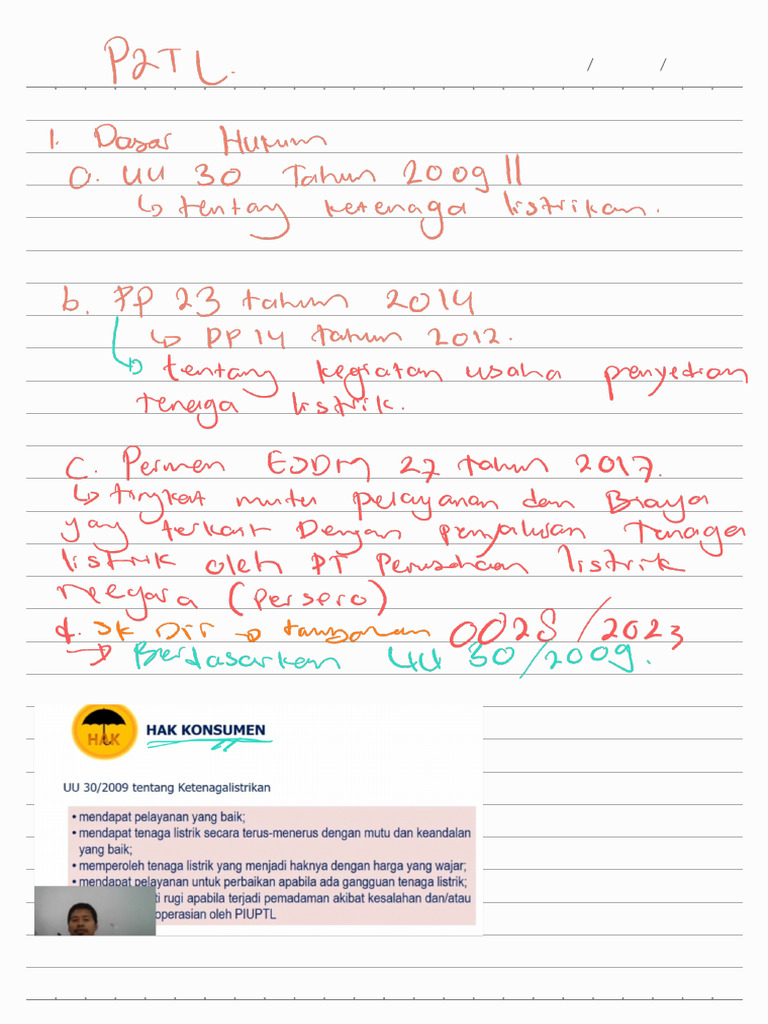 P2TL.
/ /
1. Dasar Hukum
a. UU 30 Tahun 2009 ||
↳ tentang ketenaga listrikan.
b. PP 23 tahun 2014
↳ PP 14 tahun 2012.
↳ tentang kegiatan usaha penyedian
tenaga listrik.
C. Permen ESDM 27 tahun 2017.
↳ tingkat mutu pelayanan dan Biaya
yang terkait Dengan penyaluran Tenaga
listrik oleh PT Perusahaan listrik
Negara (Persero)
d. SK Dir → tambahan 0028/2023
→ Berdasarkan UU 30/2009.
HAK HAK KONSUMEN
UU 30/2009 tentang Ketenagalistrikan
• mendapat pelayanan yang baik;
• mendapat tenaga listrik secara terus-menerus dengan mutu dan keandalan
yang baik;
• memperoleh tenaga listrik yang menjadi haknya dengan harga yang wajar;
• mendapat pelayanan untuk perbaikan apabila ada gangguan tenaga listrik;
ti rugi apabila terjadi pemadaman akibat kesalahan dan/atau
operasian oleh PIUPTL